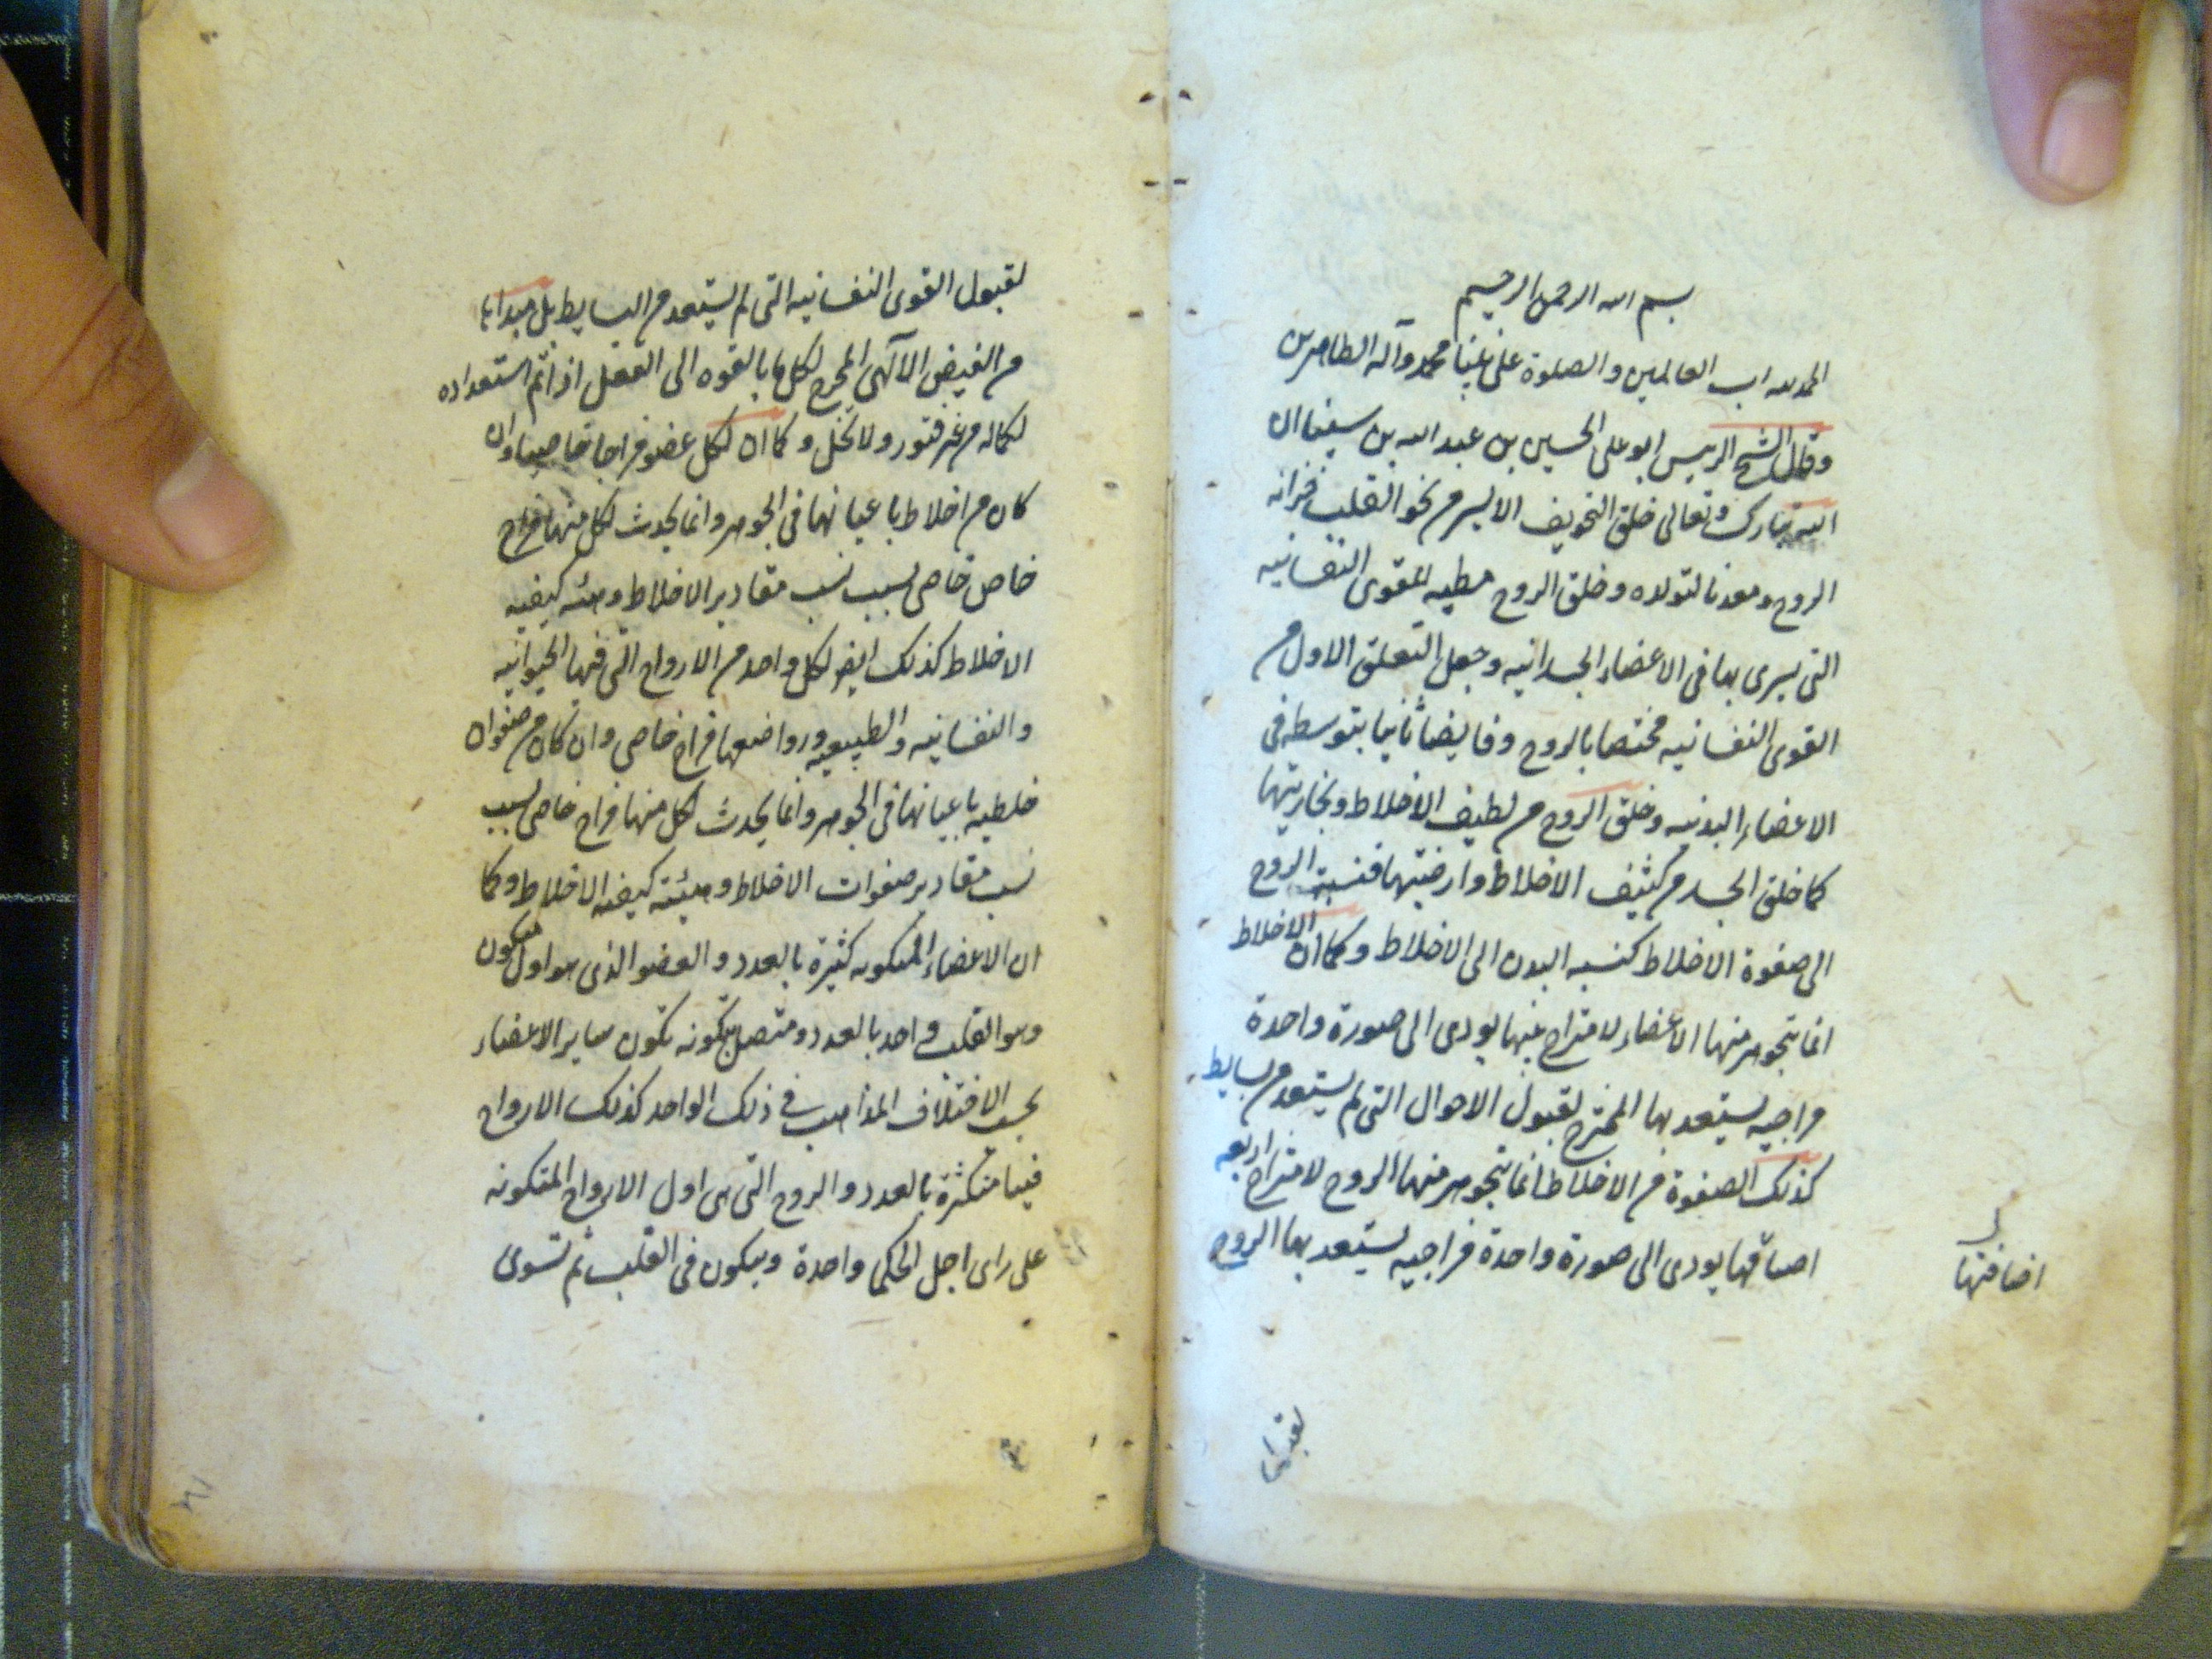 بسم الله الرحمن الرحيم
الحمد لله رب العالمين والصلوة على نبينا محمد وآله الطاهرين
وقال الشيخ الرييس ابو على الحسين بن عبد الله بن سينا ان
الله تبارك وتعالى خلق التجويف الايسر من نحو القلب خزانه
الروح ومعدنا لتولده وخلق الروح مطيه للقوى النفسانيه
التى يسرى بها فى الاعضاء الجسدانيه وجعل التعلق الاول من
القوى النفسانيه مختصا بالروح وفايضا ثانيا بتوسطه فى
الاعضاء البدنيه وخلق الروح من لطيف الاخلاط وبخاريتها
كما خلق الجسد من كثيف الاخلاط وارضيتها فنسبة الروح
الى صفوة الاخلاط كنسبه البدن الى الاخلاط وكما ان الاخلاط
انما يتجوهر منها الاعضاء لامتزاج بينها يودى الى صورة واحدة
مزاجيه يستعد بها الممتزج لقبول الاحوال التى لم يستعد من بسايط
كذلك الصفوة من الاخلاط انما يتجوهر منها الروح لامتزاج اربعه
اصنافها يودى الى صورة واحدة مزاجيه يستعد بها الروح
اضافتها
لقبول
لقبول القوى النفسانيه التى لم يستعد من البسايط بل مبداها
من الفيض الآلهى المخرج لكل ما بالقوه الى الفعل اذا تم استعداده
لكماله من غير فتور ولا بخل وكما ان لكل عضو مزاجا خاصيا وان
كان من اخلاط باعيانها فى الجوهر وانما يحدث لكل منها مزاج
خاص خاصى بسبب نسب مقادير الاخلاط وهيئه كيفيه
الاخلاط كذلك ايضا لكل واحد من الارواح التى فيها الحيوانيه
والنفسانيه والطبيعيه ورواضعها مزاج خاصى وان كان من صفوات
خلطيه باعيانها فى الجوهر وانما يحدث لكل منها مزاج خاصى بسبب
نسب مقادير صفوات الاخلاط وهيئته كيفيه الاخلاط وكما
ان الاعضاء المتكونه كثيرة بالعدد والعضو الذى هو اول متكون
وهو القلب واحد بالعدد ومتصل بتكونه تكون ساير الاعضاء
بحسب الاختلاف المذاهب فى ذلك الواحد كذلك الارواح
فينا متكثرة بالعدد والروح التى هى اول الارواح المتكونه
على راى اجل الحكما واحدة ويتكون فى القلب ثم تسرى